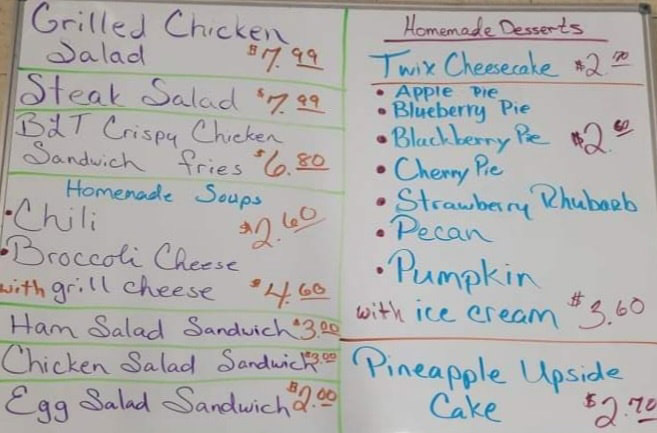 Grilled Chicken
Salad $7.99
Steak Salad $7.99
BLT Crispy Chicken
Sandwich fries $6.80
Homemade Soups
• Chili $2.60
• Broccoli Cheese
with grill cheese $4.60
Ham Salad Sandwich $3.00
Chicken Salad Sandwich $3.00
Egg Salad Sandwich $2.00
Homemade Desserts
Twix Cheesecake $2.70
• Apple Pie
• Blueberry Pie
• Blackberry Pie $2.60
• Cherry Pie
• Strawberry Rhubarb
• Pecan
• Pumpkin
with ice cream $3.60
Pineapple Upside
Cake $2.70